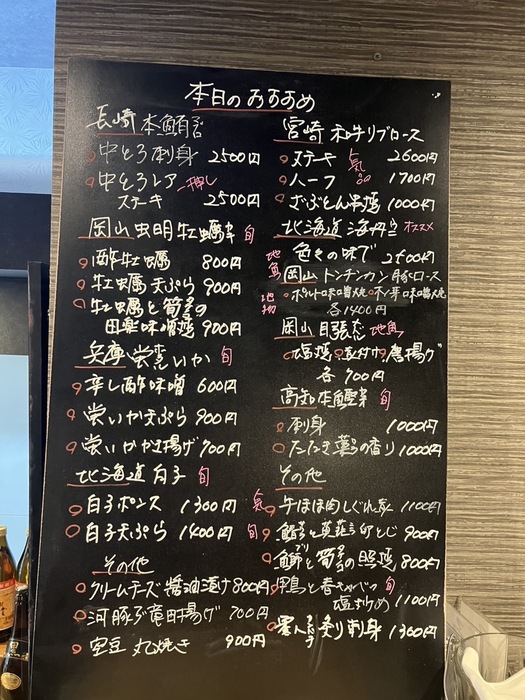 本日のおすすめ
長崎 本鮪
中とろ刺身 2500円
中とろレア 一押し
ステーキ 2500円
岡山 虫明牡蠣 旬
酢牡蠣 800円
牡蠣天ぷら 900円
牡蠣と筍の
田楽味噌焼 900円
兵庫 蛍いか 旬
辛し酢味噌 600円
蛍いか天ぷら 900円
蛍いかかき揚げ 900円
北海道 白子 旬
白子ポンズ 1300円
白子天ぷら 1400円
その他
クリームチーズ醤油漬け 800円
河豚竜田揚げ 700円
空豆 丸焼き 900円
宮崎 和牛リブロース
ステーキ 2600円
ハーフ 1700円
ざぶとん串焼 1000円
北海道 海丹 オススメ
色々の味で
岡山 トンチンカン豚ロース
各1400円
岡山 目張 地魚
塩焼 煮付け 唐揚げ
各900円
高知 本鰹 旬
刺身 1000円
たたき 薬味の香り 1000円
その他
牛ほほ肉しぐれ煮 1100円
900円
鰤と筍の照焼 800円
鴨と春キャベツの 旬
塩炒め 1100円
炙り刺身 1300円